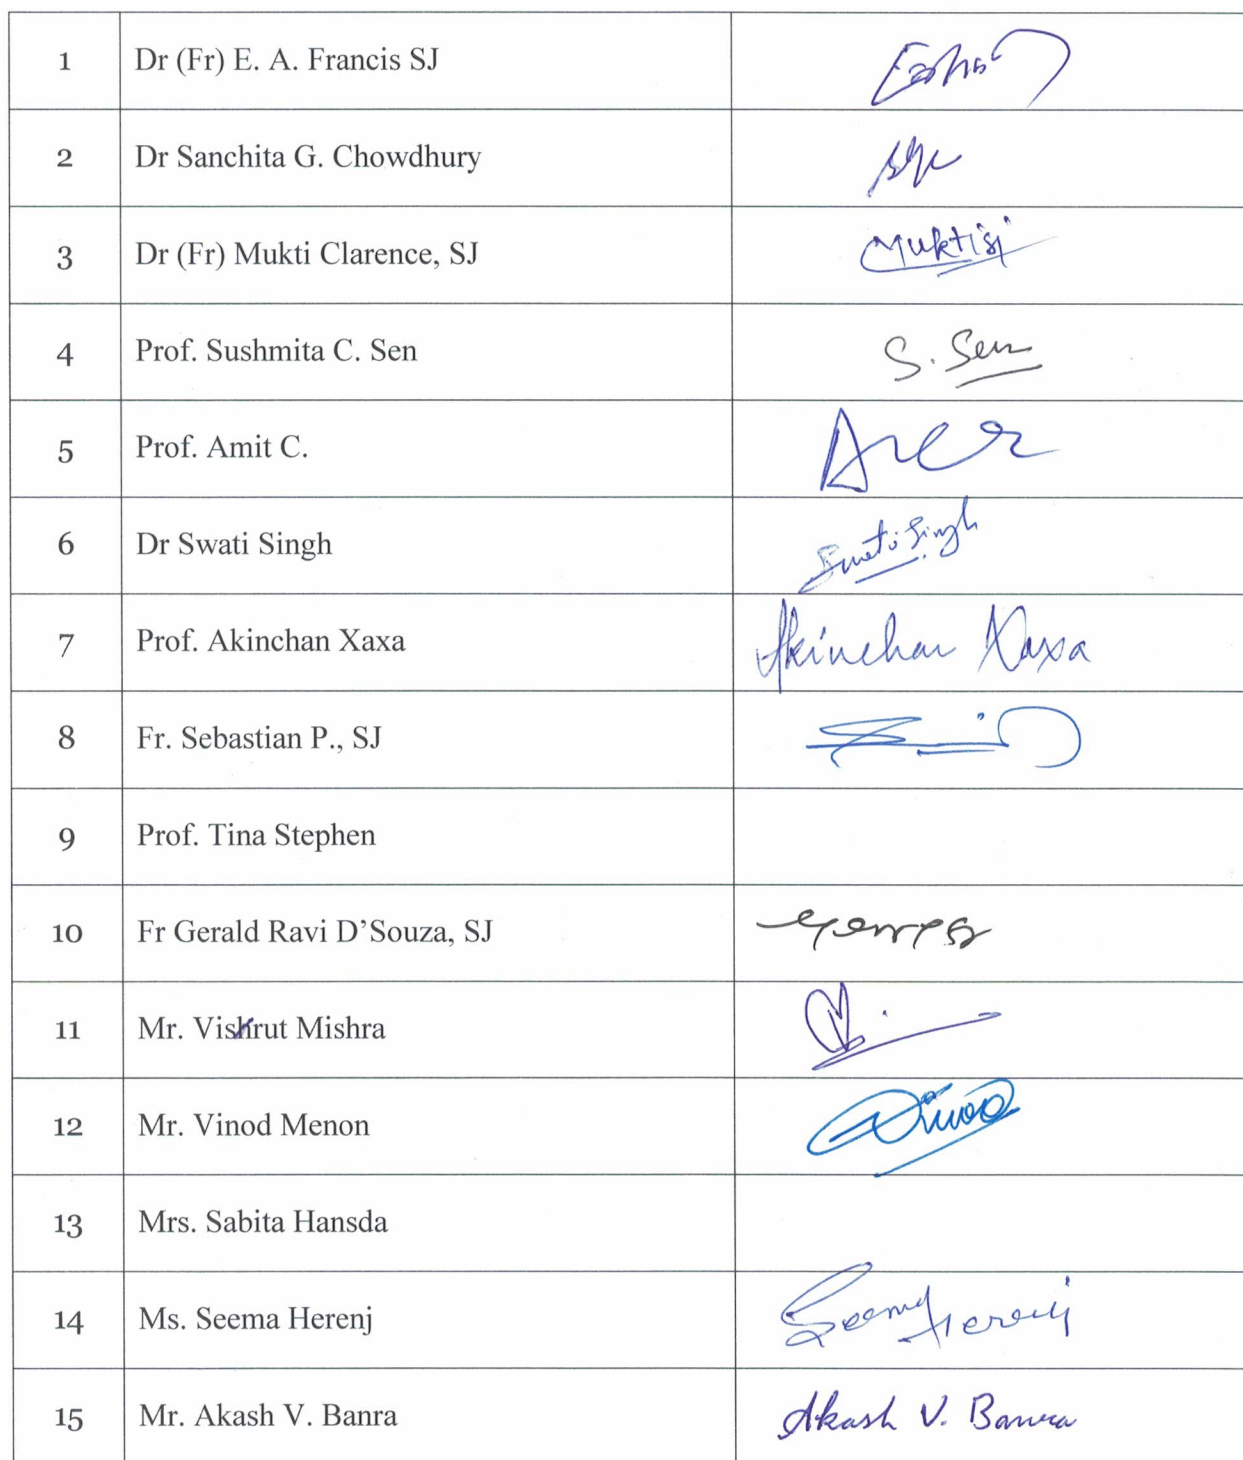 1 Dr (Fr) E. A. Francis SJ
2 Dr Sanchita G. Chowdhury
3 Dr (Fr) Mukti Clarence, SJ Muktisj
4 Prof. Sushmita C. Sen S. Sen
5 Prof. Amit C.
6 Dr Swati Singh Swati Singh
7 Prof. Akinchan Xaxa Akinchan Xaxa
8 Fr. Sebastian P., SJ
9 Prof. Tina Stephen
10 Fr Gerald Ravi D'Souza, SJ
11 Mr. Vishrut Mishra
12 Mr. Vinod Menon Vinod
13 Mrs. Sabita Hansda
14 Ms. Seema Herenj Seema Herenj
15 Mr. Akash V. Banra Akash V. Banra